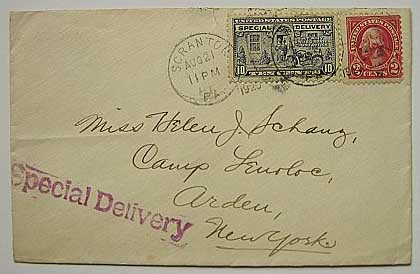 SCRANTON
AUG 21
11 PM
PA.
192
UNITED STATES POSTAGE
SPECIAL DELIVERY
10 TEN CENTS 10
2 CENTS 2
Miss Helen J. Schang,
Camp
Arden,
New York.
Special Delivery